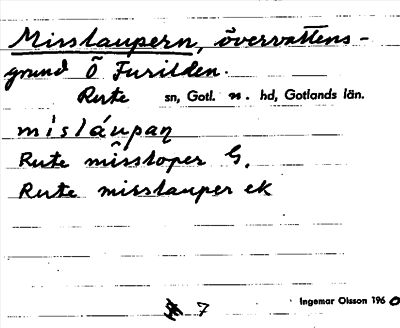 Misslaupern, övervattens-
grund Ö Furilden.
Rute sn, Gotl. n. hd, Gotlands län.
mislåupaŋ
Rute missloper G.
Rute misslauper ek
7
Ingemar Olsson 1960